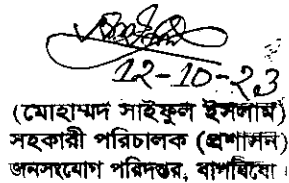 12-10-23
(মোহাম্মদ সাইফুল ইসলাম)
সহকারী পরিচালক (প্রশাসন)
জনসংযোগ পরিদপ্তর, বাপবিবো।